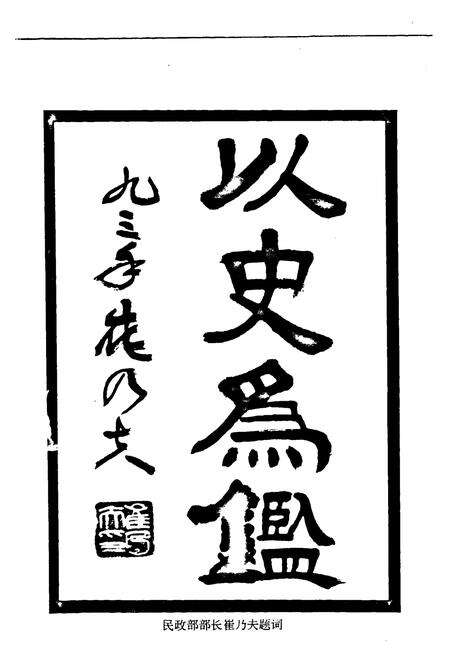 以史為鑑
九三年崔乃夫
民政部部长崔乃夫题词